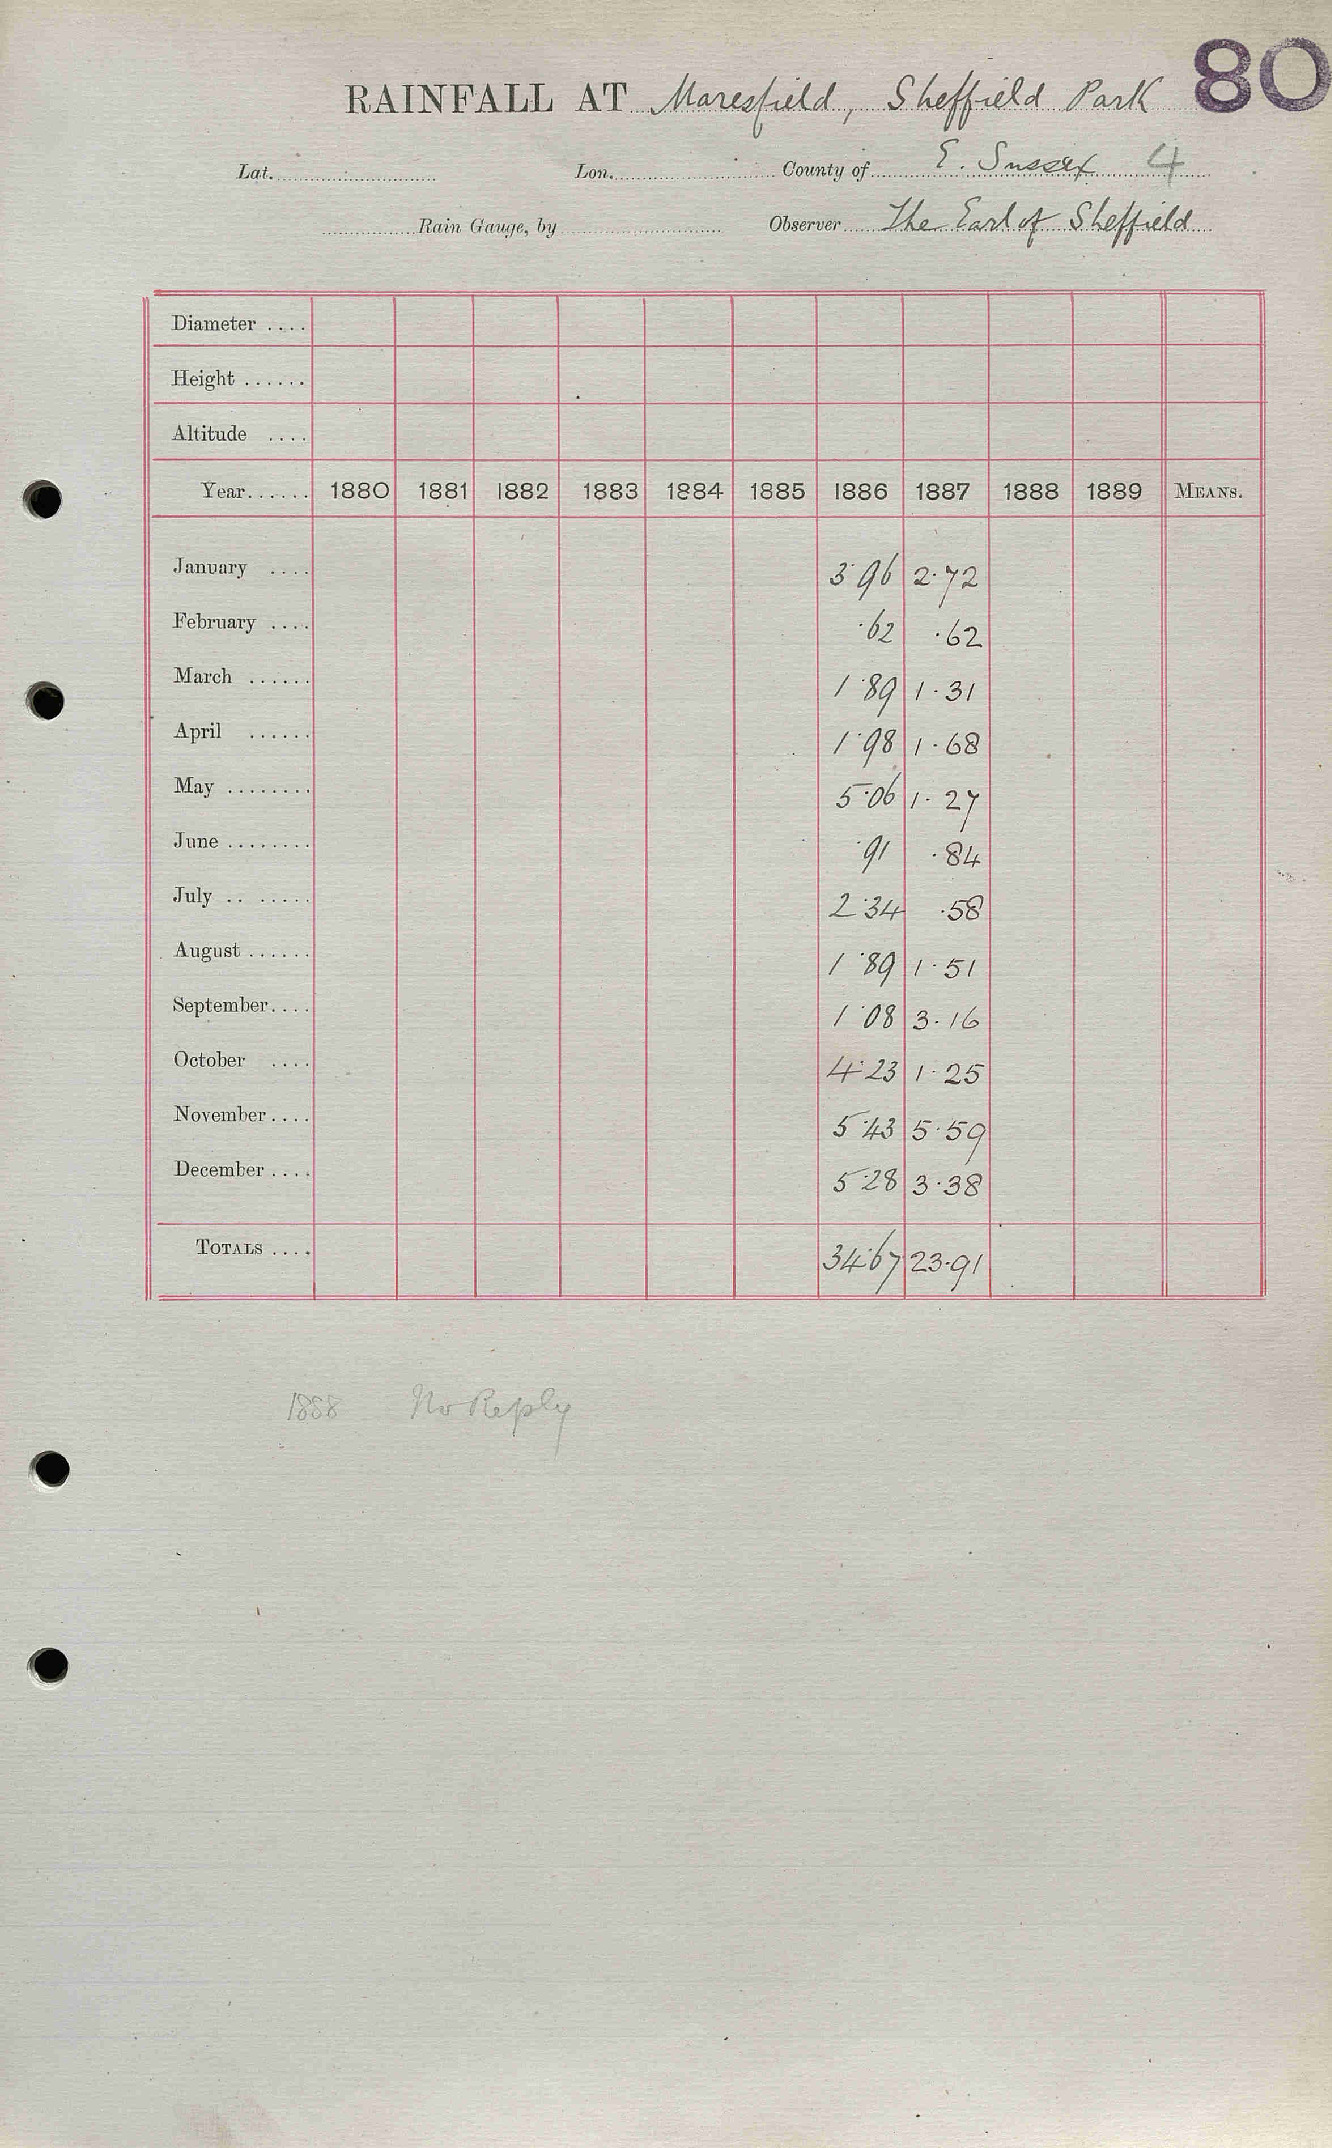 80
RAINFALL AT Maresfield, Sheffield Park
Lat. Lon. County of E. Sussex 4
Rain Gauge, by Observer The Earl of Sheffield
Diameter ....
Height ......
Altitude ....
Year...... 1880 1881 1882 1883 1884 1885 1886 1887 1888 1889 MEANS.
January .... 3·96 2·72
February .... ·62 ·62
March ...... 1·89 1·31
April ...... 1·98 1·68
May ........ 5·06 1·27
June ........ ·91 ·84
July .. ...... 2·34 ·58
August ...... 1·89 1·51
September.... 1·08 3·16
October .... 4·23 1·25
November.... 5·43 5·59
December .... 5·28 3·38
TOTALS .... 34·67 23·91
1888 No Reply